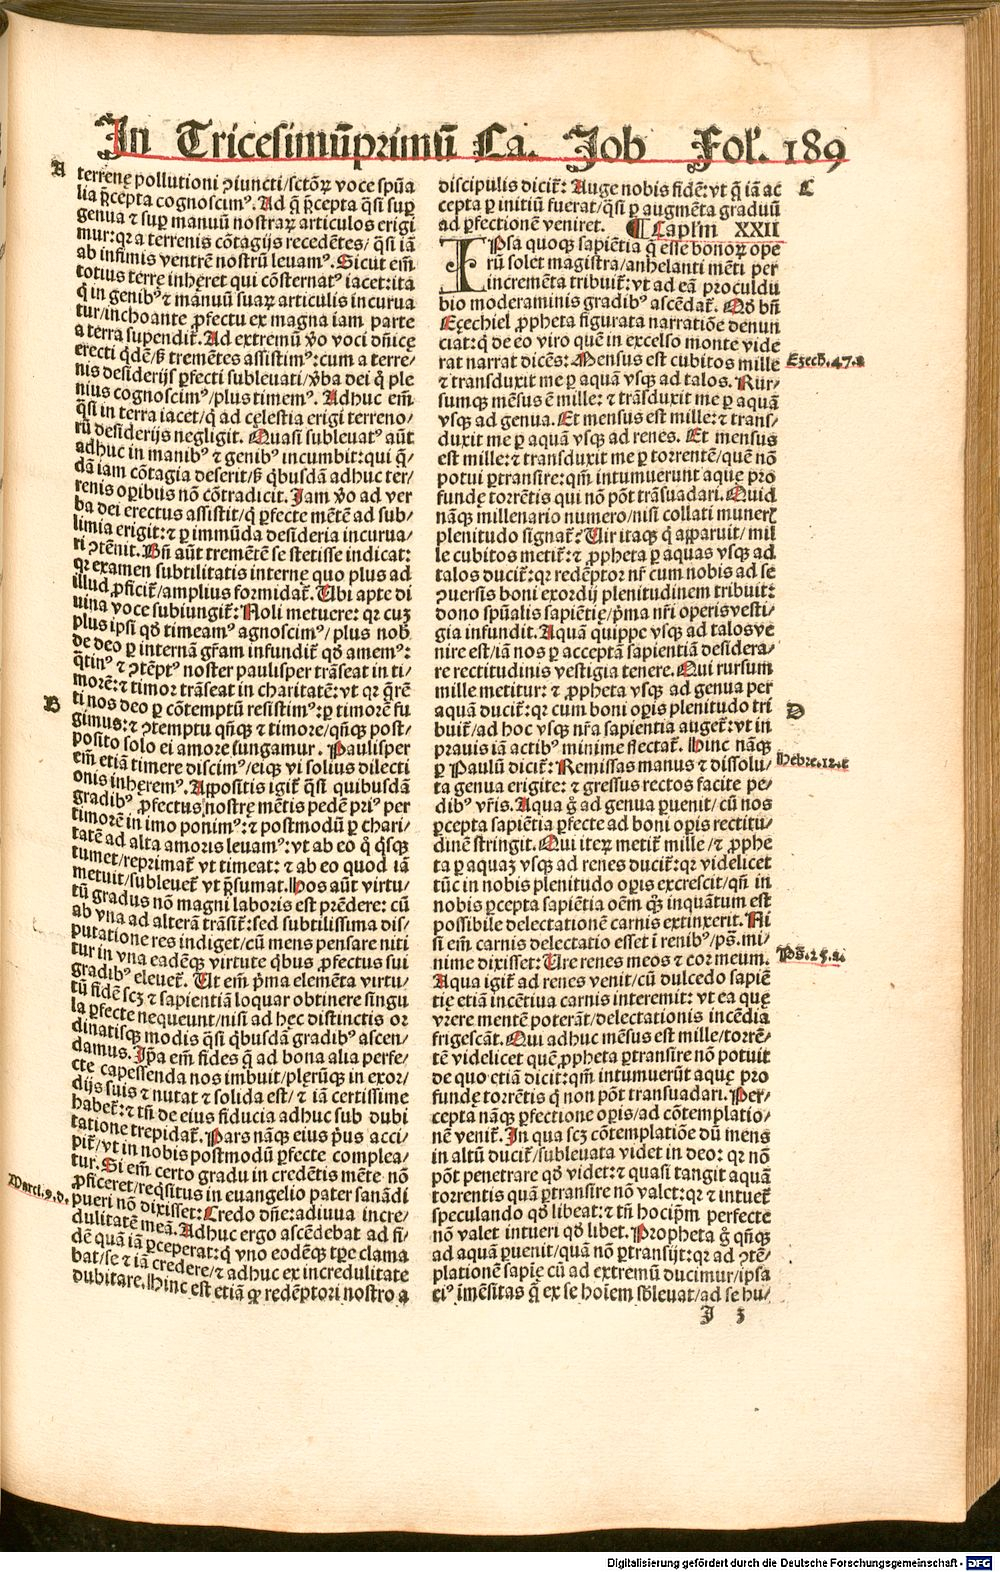 In Tricesimūprimū Ca. Job Fol. 189
A
terrenę pollutioni ꝯiuncti/sctōꝝ voce spūa
lia p̄cepta cognoscimꝰ. Ad q̄ p̄cepta q̄si suꝑ
genua ⁊ suꝑ manuū nostraꝝ articulos erigi
mur: qꝛ a terrenis cōtagijs recedētes/ q̄si iā
ab infimis ventrē nostrū leuamꝰ. Sicut em̄
totius terrę inhęret qui cōsternatꝰ iacet: ita
q̇ in genibꝰ ⁊ manuū suaꝝ articulis incurua
tur/inchoante ꝓfectu ex magna iam parte
a terra supendit̄. Ad extremū ṽo voci dn̄icę
erecti q̇dē/ẞ tremētes assistimꝰ: cum a terre⸗
nis desiderijs ꝑfecti subleuati/ṽba dei q̇ ple
nius cognoscimꝰ/plus timemꝰ. Adhuc em̄
q̄si in terra iacet/q̇ ad cęlestia erigi terreno⸗
rū desiderijs negligit. Quasi subleuatꝰ aūt
adhuc in manibꝰ ⁊ genibꝰ incumbit: qui q̄⸗
dā iam cōtagia deserit/ẞ q̇busdā adhuc ter⸗
renis oꝑibus nō cōtradicit. Iam ṽo ad ver
ba dei erectus assistit/q̇ ꝑfecte mētē ad sub⸗
limia erigit: ⁊ ꝑ immūda desideria incurua⸗
ri ꝯtēnit. Bn̄ aūt tremētē se stetisse indicat:
qꝛ examen subtilitatis internę quo plus ad
illud ꝓficit̄/amplius formidat̄. Ubi apte di
uina voce subiungit̄: Noli metuere: qꝛ cuꝫ
plus ipsi qđ timeamꝰ agnoscimꝰ/ plus nob̄
de deo ꝑ internā gr̄am infundit̄ qđ amemꝰ:
q̄tinꝰ ⁊ ꝯtēptꝰ noster paulisper trāseat in ti⸗
morē: ⁊ timor trāseat in charitatē: vt qꝛ q̄rē
B
ti nos deo ꝑ cōtemptū resistimꝰ: ꝑ timorē fu
gimus: ⁊ ꝯtemptu qn̄qꝫ ⁊ timore/qn̄qꝫ post⸗
posito solo ei amore iungamur. Paulisper
em̄ etiā timere discimꝰ/eiqꝫ vi solius dilecti
onis inhęremꝰ. Appositis igit̄ q̄si quibusdā
gradibꝰ ꝓfectus nostrę mētis pedē priꝰ per
timorē in imo ponimꝰ: ⁊ postmodū ꝑ chari⸗
tatē ad alta amoris leuamꝰ: vt ab eo q̇ q̇sqꝫ
tumet/reprimat̄ vt timeat: ⁊ ab eo quod iā
metuit/subleuet̄ vt p̄sumat. Hos aūt virtu⸗
tū gradus nō magni laboris est prēdere: cū
ab vna ad alterā trāsit̄: sed subtilissima dis⸗
putatione res indiget/cū mens pensare niti
tur in vna eadēqꝫ virtute q̇bus ꝓfectus sui
gradibꝰ eleuet̄. Ut em̄ p̄ma elemēta virtu⸗
tū fidē scꝫ ⁊ sapientiā loquar obtinere singu
la ꝑfecte nequeunt/nisi ad hęc distinctis or
dinatisqꝫ modis q̄si q̇busdā gradibꝰ ascen⸗
damus. Ip̄a em̄ fides q̄ ad bona alia perfe⸗
cte capessenda nos imbuit/plęrūqꝫ in exor⸗
dijs suis ⁊ nutat ⁊ solida est/ ⁊ iā certissime
habet̄: ⁊ tn̄ de eius fiducia adhuc sub dubi
tatione trepidat̄. Pars nāqꝫ eius p̄us acci⸗
pit̄/vt in nobis postmodū ꝑfecte complea⸗
tur. Si em̄ certo gradu in credētis mēte nō
ꝓficeret/reqꝫsitus in euangelio pater sanādi
Marci. 9. d.
pueri nō dixisset: Credo dn̄e: adiuua incre⸗
dulitatē meā. Adhuc ergo ascēdebat ad fi⸗
dē quā iā ꝑceperat: q̇ vno eodēqꝫ tp̄e clama
bat/se ⁊ iā credere/⁊ adhuc ex incredulitate
dubitare. Hinc est etiā qꝙ redēptori nostro a
C
discipulis dicit̄: Auge nobis fidē: vt q̄ iā ac
cepta ꝑ initiū fuerat/q̄si ꝑ augmēta graduū
ad ꝑfectionē veniret. ¶ Caplm XXII
IPsa quoqꝫ sapiētia q̄ esse bonoꝝ ope
rū solet magistra/anhelanti mēti per
incremēta tribuit̄: vt ad eā proculdu
bio moderaminis gradibꝰ ascēdat̄. Qđ bn̄
Ezechiel ꝓpheta figurata narratiōe denun
ciat: q̇ de eo viro quē in excelso monte vide
rat narrat dicēs: Mensus est cubitos mille
Ezech. 47. a
⁊ transduxit me ꝑ aquā vsqꝫ ad talos. Rur⸗
sumqꝫ mēsus ē mille: ⁊ trāsduxit me ꝑ aquā
vsqꝫ ad genua. Et mensus est mille: ⁊ trans⸗
duxit me ꝑ aquā vsqꝫ ad renes. Et mensus
est mille: ⁊ transduxit me ꝑ torrentē/quē nō
potui ꝑtransire: qm̄ intumuerunt aquę pro
fundę torrētis qui nō pōt trāsuadari. Quid
nāqꝫ millenario numero/nisi collati munerꝭ
plenitudo signat̄: Uir itaqꝫ q̇ apparuit/ mil
le cubitos metit̄: ⁊ ꝓpheta ꝑ aquas vsqꝫ ad
talos ducit̄: qꝛ redēptor nr̄ cum nobis ad se
ꝯuersis boni exordij plenitudinem tribuit:
dono spūalis sapiētię/p̄ma nr̄i operis vesti⸗
gia infundit. Aquā quippe vsqꝫ ad talos ve
nire est/iā nos ꝑ acceptā sapientiā desidera⸗
re rectitudinis vestigia tenere. Qui rursum
mille metitur: ⁊ ꝓpheta vsqꝫ ad genua per
D
aquā ducit̄: qꝛ cum boni oꝑis plenitudo tri
buit̄/ad hoc vsqꝫ nr̄a sapientia auget̄: vt in
prauis iā actibꝰ minime flectat̄. Hinc nāqꝫ
ꝑ Paulū dicit̄: Remissas manus ⁊ dissolu⸗
Hebre. 12. c
ta genua erigite: ⁊ gressus rectos facite pe⸗
dibꝰ vr̄is. Aqua ḡ ad genua ꝑuenit/ cū nos
ꝑcepta sapiētia ꝑfecte ad boni oꝑis rectitu⸗
dinē stringit. Qui iteꝝ metit̄ mille /⁊ ꝓphē
ta ꝑ aquaꝫ vsqꝫ ad renes ducit̄: qꝛ videlicet
tūc in nobis plenitudo oꝑis excrescit/qn̄ in
nobis ꝑcepta sapiētia oēm qꝫ inquātum est
possibile delectationē carnis extinxerit. Ni
si em̄ carnis delectatio esset ī renibꝰ/ps̄. mi⸗
nime dixisset: Ure renes meos ⁊ cor meum.
Ps̄. 25. a.
Aqua igit̄ ad renes venit/cū dulcedo sapiē
tię etiā incētiua carnis interemit: vt ea quę
vrere mentē poterāt/delectationis incēdia
frigescāt. Qui adhuc mēsus est mille/torrē⸗
tē videlicet quē ꝓpheta ꝑtransire nō potuit
de quo etiā dicit: qm̄ intumuerūt aquę pro
fundę torrētis q̇ non pōt transuadari. Per⸗
cepta nāqꝫ ꝑfectione oꝑis/ad cōtemplatio⸗
nē venit̄. In qua scꝫ cōtemplatiōe dū mens
in altū ducit̄/subleuata videt in deo: qꝛ nō
pōt penetrare qđ videt: ⁊ quasi tangit aquā
torrentis quā ꝑtransire nō valet: qꝛ ⁊ intuet̄
speculando qđ libeat: ⁊ tn̄ hocip̄m perfecte
nō valet intueri qđ libet. Propheta ḡ qn̄qꝫ
ad aquā ꝑuenit/quā nō ꝑtransijt: qꝛ ad ꝯtē⸗
plationē sapię cū ad extremū ducimur/ipsa
eiꝰ īmēsitas q̄ ex se hoīem sb̄leuat/ad se hu⸗
I 3
Digitalisierung gefördert durch die Deutsche Forschungsgemeinschaft - DFG